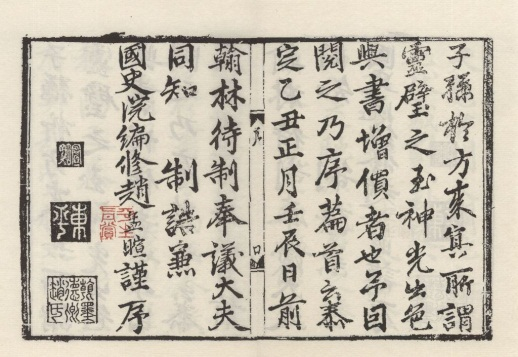 子孫於方来真所謂
靈璧之玉神光出色
與書增價者也予因
閱之乃序萹首云泰
定乙丑正月壬辰日前
翰林待制奉議大夫
同知 制誥兼
國史院編修趙孟暄謹序
序